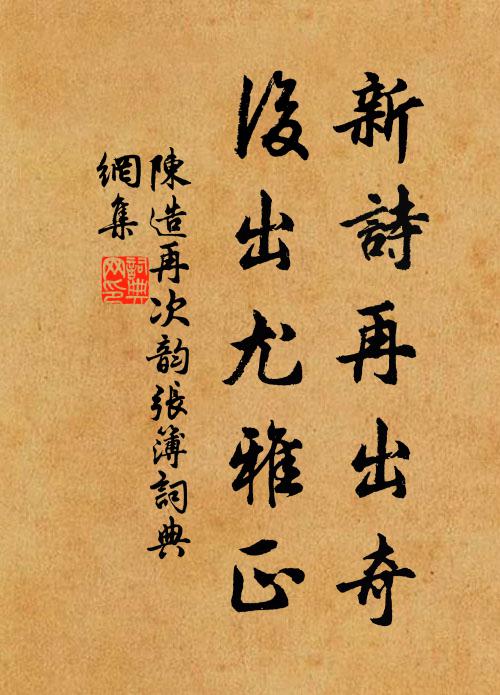 新詩再出奇
後出尤雅正
陳造再次韵張簿詞典
網集
詞典
网印